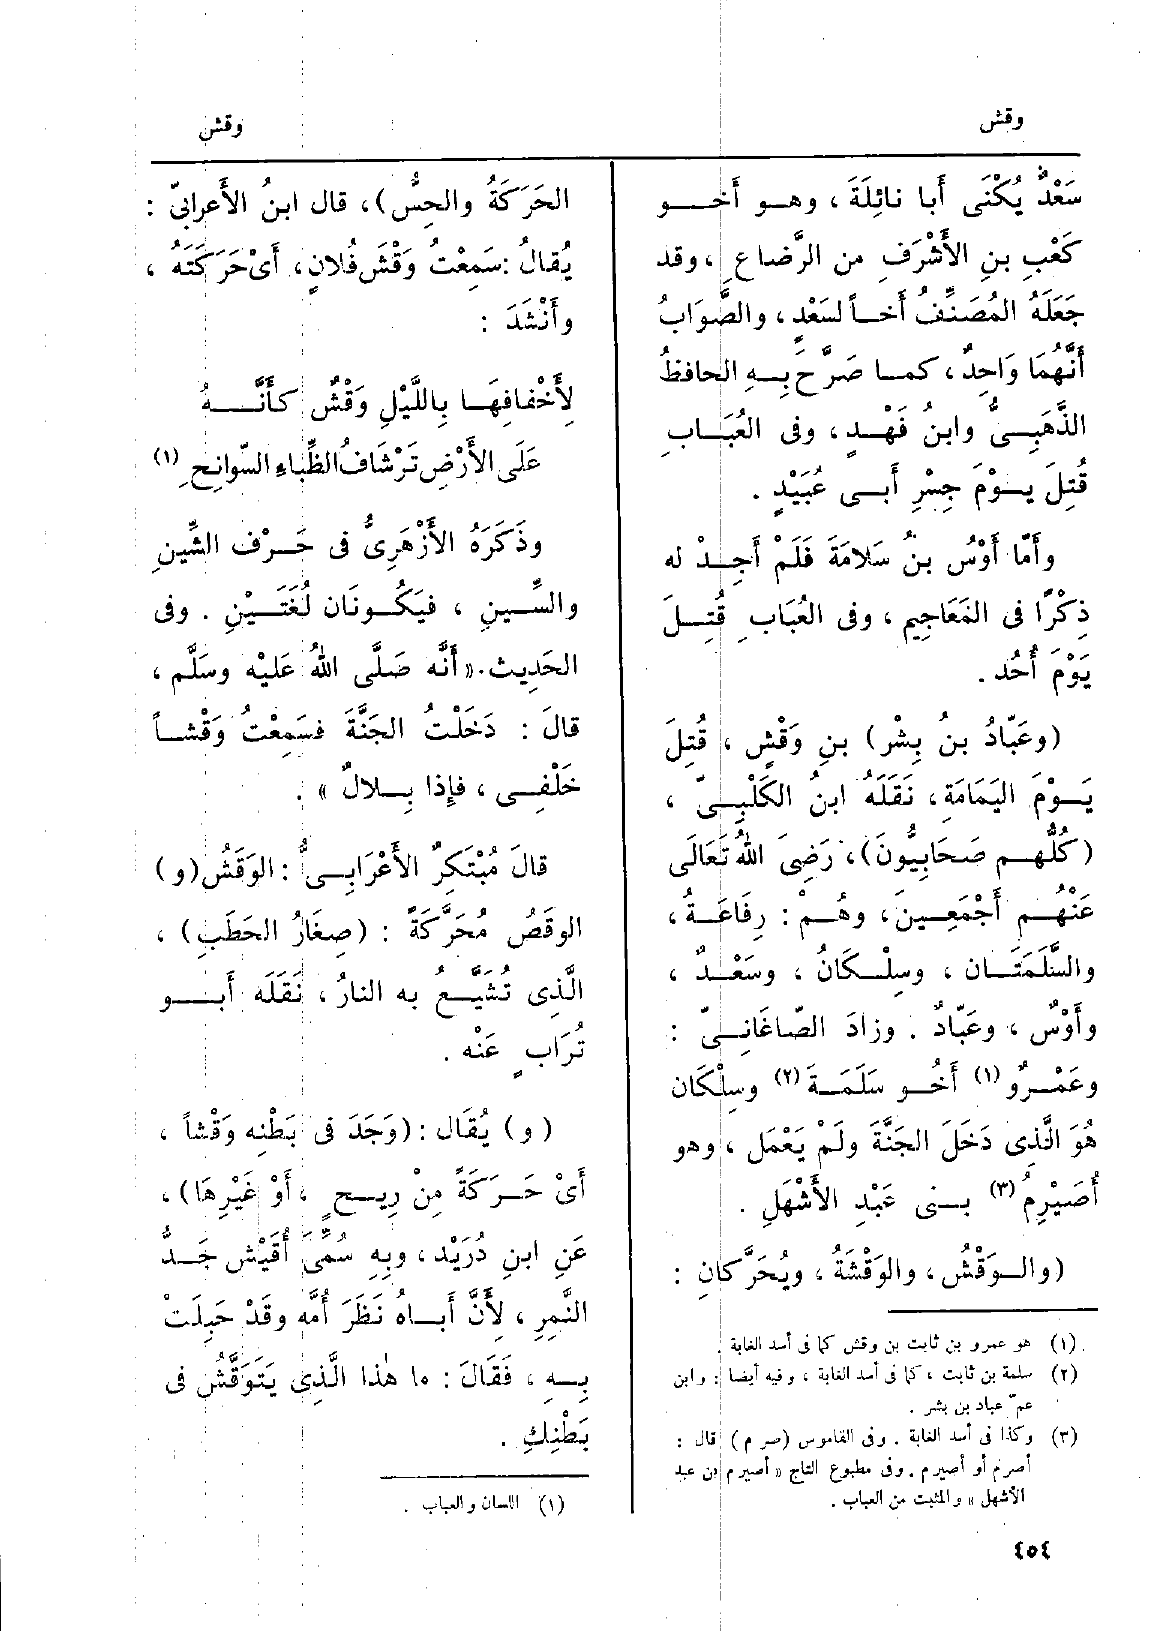 وقش
وقش
سَعْدٌ يُكْنَى أَبا نائِلَةَ ، وهـو أَخــو
كَعْبِ بنِ الأَشْرَفِ من الرَّضاعِ ، وقد
جَعَلَهُ المُصَنِّفُ أَخـاً لسَعْدٍ ، والصَّوَابُ
أَنَّهُمَا وَاحِدٌ ، كمـا صَرَّحَ بِـهِ الحافظُ
الذَّهَبِـىُّ وابنُ فَهْـدٍ ، وفى العُبَـابِ
قُتِلَ يـوْمَ جِسْرِ أَبـى عُبَيْدٍ .
وأَمّا أَوْسُ بنُ سَلامَةَ فَلَمْ أَجِـدْ له
ذِكْرًا فى المَعَاجِيمِ ، وفى العُبَابِ قُتِـلَ
يَوْمَ أُحُد .
(وعَبّادُ بنُ بِشْر) بنِ وَقْشٍ ، قُتِلَ
يَـوْمَ اليَمَامَةِ ، نَقَلَهُ ابنُ الكَلْبِـىّ ،
(كُلُّهـم صَحَابِيُّونَ) ، رَضِىَ اللهُ تَعَالَى
عَنْهُـم أَجْمَعِـينَ ، وهُـمْ : رِفَاعَـةُ ،
والسَّلَمَتَـان ، وسِلْـكَانُ ، وسَعْـدٌ ،
وأَوْسٌ ، وعَبّادٌ . وزادَ الصّاغَانِـىّ :
وعَمْـرٌو (١) أَخُـو سَلَمَـةَ (٢) وسِلْكَان
هُوَ الَّذِى دَخَلَ الجَنَّةَ ولَمْ يَعْمَل ، وهو
أُصَيْرِمُ (٣) بـنى عَبْدِ الأَشْهَلِ .
(والـوَقْشُ ، والوَقْشَةُ ، ويُحَرَّكانِ :
(١) هو عمرو بن ثابت بن وقش كما فى أسد الغابة .
(٢) سلمة بن ثابت ، كما فى أسد الغابة ، وفيه أيضا : وابن
عمّ عباد بن بشر .
(٣) وكذا فى أسد الغابة . وفى القاموس (صرم) قال :
أصرم أو أصيرم . وفى مطبوع التاج « أصيرم بن عبد
الأشهل » والمثبت من العباب .
الحَرَكَةُ والحِسُّ) ، قال ابنُ الأَعرابىّ :
يُقالُ : سَمِعْتُ وَقْشَ فُلانٍ ، أَىْ حَرَكَتَه ،
وأَنْشَدَ :
لِأَخْفافِهَـا بِاللَّيْلِ وَقْشٌ كـأَنَّــهُ
عَلَى الأَرْضِ تَرْشَافُ الظِّباءِ السّوانِحِ (١)
وذَكَرَهُ الأَزْهَرِىُّ فى حَـرْف الشِّينِ
والسِّينِ ، فيَكُـونَان لُغَتَـيْنِ . وفى
الحَدِيث . « أَنَّه صَلَّى اللهُ عَلَيْه وسَلَّم ،
قالَ : دَخَلْتُ الجَنَّةَ فسَمِعْتُ وَقْشـاً
خَلْفِـى ، فإِذا بِـلالٌ » .
قالَ مُبْتَكِرٌ الأَعْرَابِـىُّ : الوَقَشُ (و)
الوقَصُ مُحَرَّكَةً : (صِغَارُ الحَطَبِ) ،
الَّذِى تُشَيَّـعُ به النارُ ، نَقَلَه أَبــو
تُرَابٍ عَنْه .
(و) يُقَال : (وَجَدَ فى بَطْنِه وَقْشاً ،
أَىْ حَـرَكَةً مِنْ رِيـحٍ ، أَوْ غَيْرِهَا) ،
عَنِ ابنِ دُرَيْد ، وبِهِ سُمِّىَ أُقَيْش جَـدُّ
النَّمِرِ ، لِأَنَّ أَبـاهُ نَظَرَ أُمَّه وقَدْ حَبِلَتْ
بِـهِ ، فَقَالَ : ما هٰذا الَّذِى يَتَوَقَّشُ فى
بَطْنِكِ .
(١) اللسان والعباب .
٤٥٤